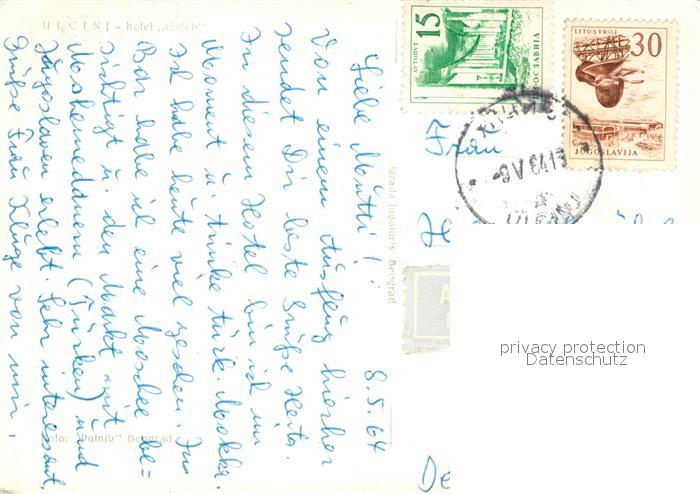 ULCINJ - hotel „Galeb"
8.5.64
Liebe Mutti!
Von einem Ausflug hierher
sendet Dir beste Grüße Herta.
In diesem Hotel bin ich im
Moment u. trinke türk. Mokka.
Ich habe heute viel gesehen. In
Bar habe ich eine Moschee be=
sichtigt u. den Markt mit
Mohamedanern (Türken) und
Jugoslaven erlebt. Sehr interessant.
Grüße Frau Kluge von mir.
Foto: "Putnik" Beograd
Izrada Jugoturs Beograd
15
АУТОПУТ
ЈУГОСЛАВИЈА
LITOSTROJ
30
JUGOSLAVIJA
Frau
De
privacy protection
Datenschutz